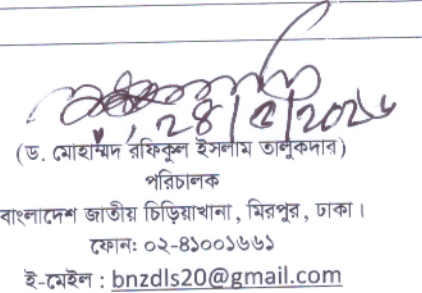 ২৪/৫/২০২৬
(ড. মোহাম্মদ রফিকুল ইসলাম তালুকদার)
পরিচালক
বাংলাদেশ জাতীয় চিড়িয়াখানা, মিরপুর, ঢাকা।
ফোন: ০২-৪১০০১৬৬১
ই-মেইল : bnzdls20@gmail.com